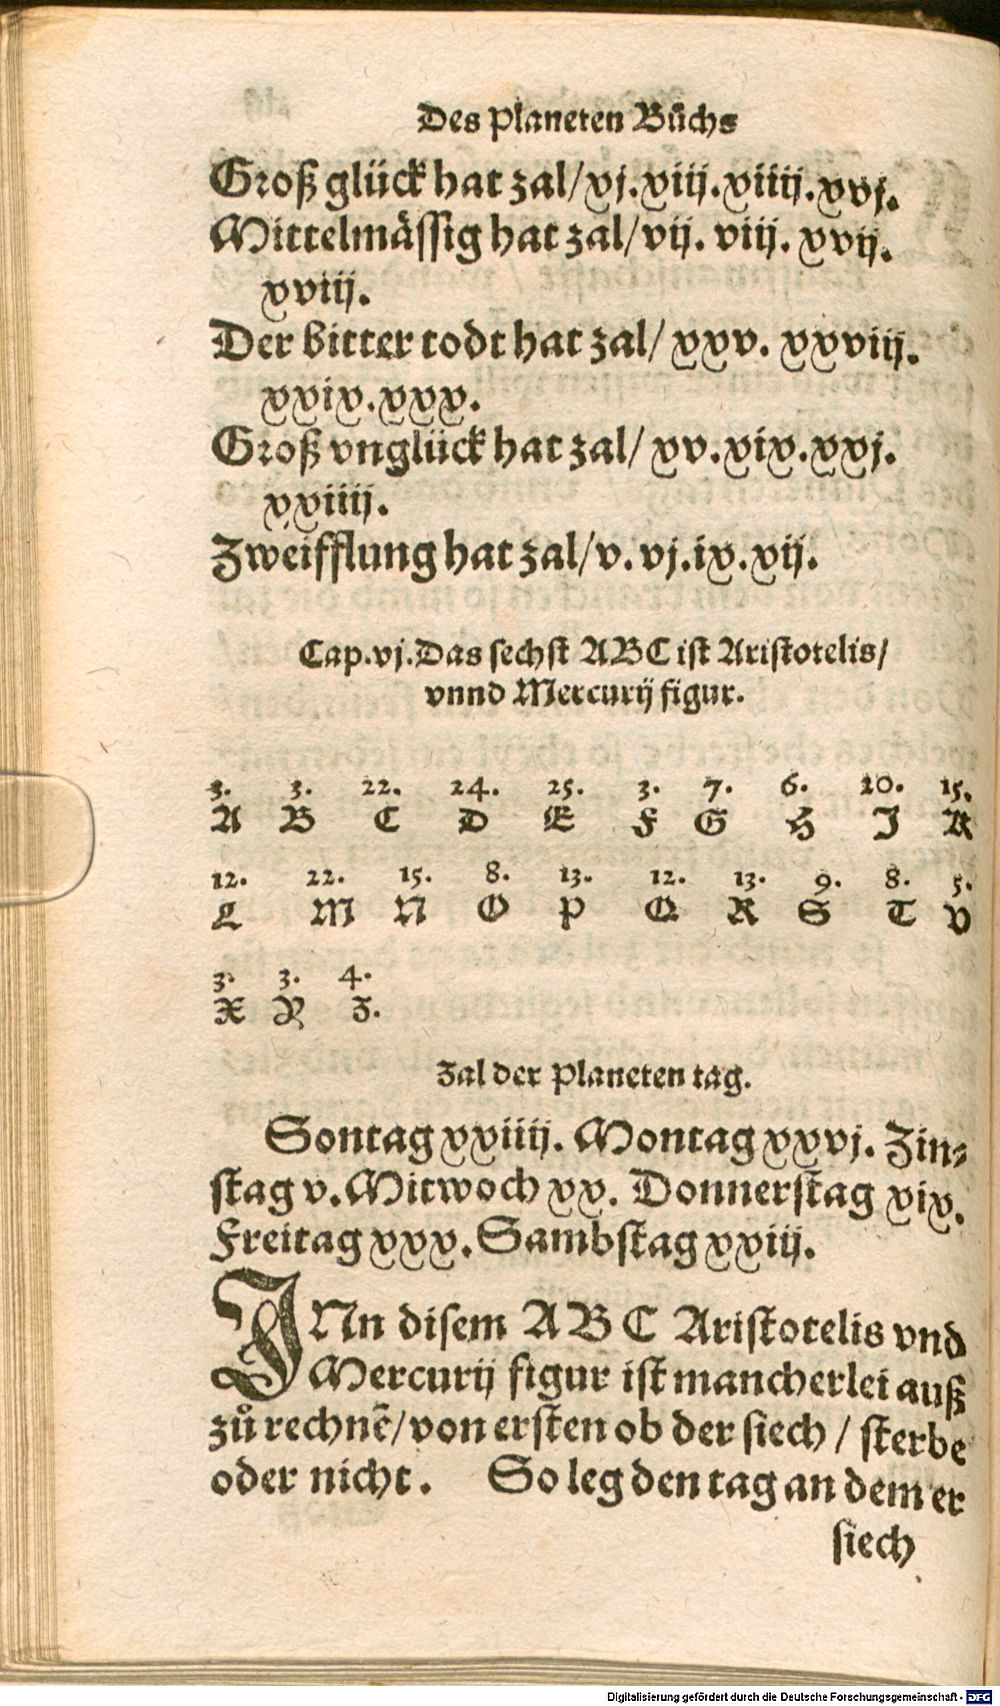 Des Planeten Bůchs
Groß glück hat zal/ xj. xiij. xiiij. xvj.
Mittelmässig hat zal/ vij. viij. xvij.
xviij.
Der bitter todt hat zal/ xxv. xxviij.
xxix. xxx.
Groß vnglück hat zal/ xv. xix. xxj.
xxiiij.
Zweifflung hat zal/ v. vj. ix. xij.
Cap. vj. Das sechst ABC ist Aristotelis/
vnnd Mercurij figur.
3. 3. 22. 24. 25. 3. 7. 6. 20. 15.
A B C D E F G H J K
12. 22. 15. 8. 13. 12. 13. 9. 8. 5.
L M N O P Q R S T V
3. 3. 4.
X Y Z.
Zal der Planeten tag.
Sontag xxiiij. Montag xxvj. Zin⸗
stag v. Mitwoch xx. Donnerstag xix.
Freitag xxx. Sambstag xxiij.
JNn disem A B C Aristotelis vnd
Mercurij figur ist mancherlei auß
zů rechnē/ von ersten ob der siech / sterbe
oder nicht. So leg den tag an dem er
siech
Digitalisierung gefördert durch die Deutsche Forschungsgemeinschaft - DFG